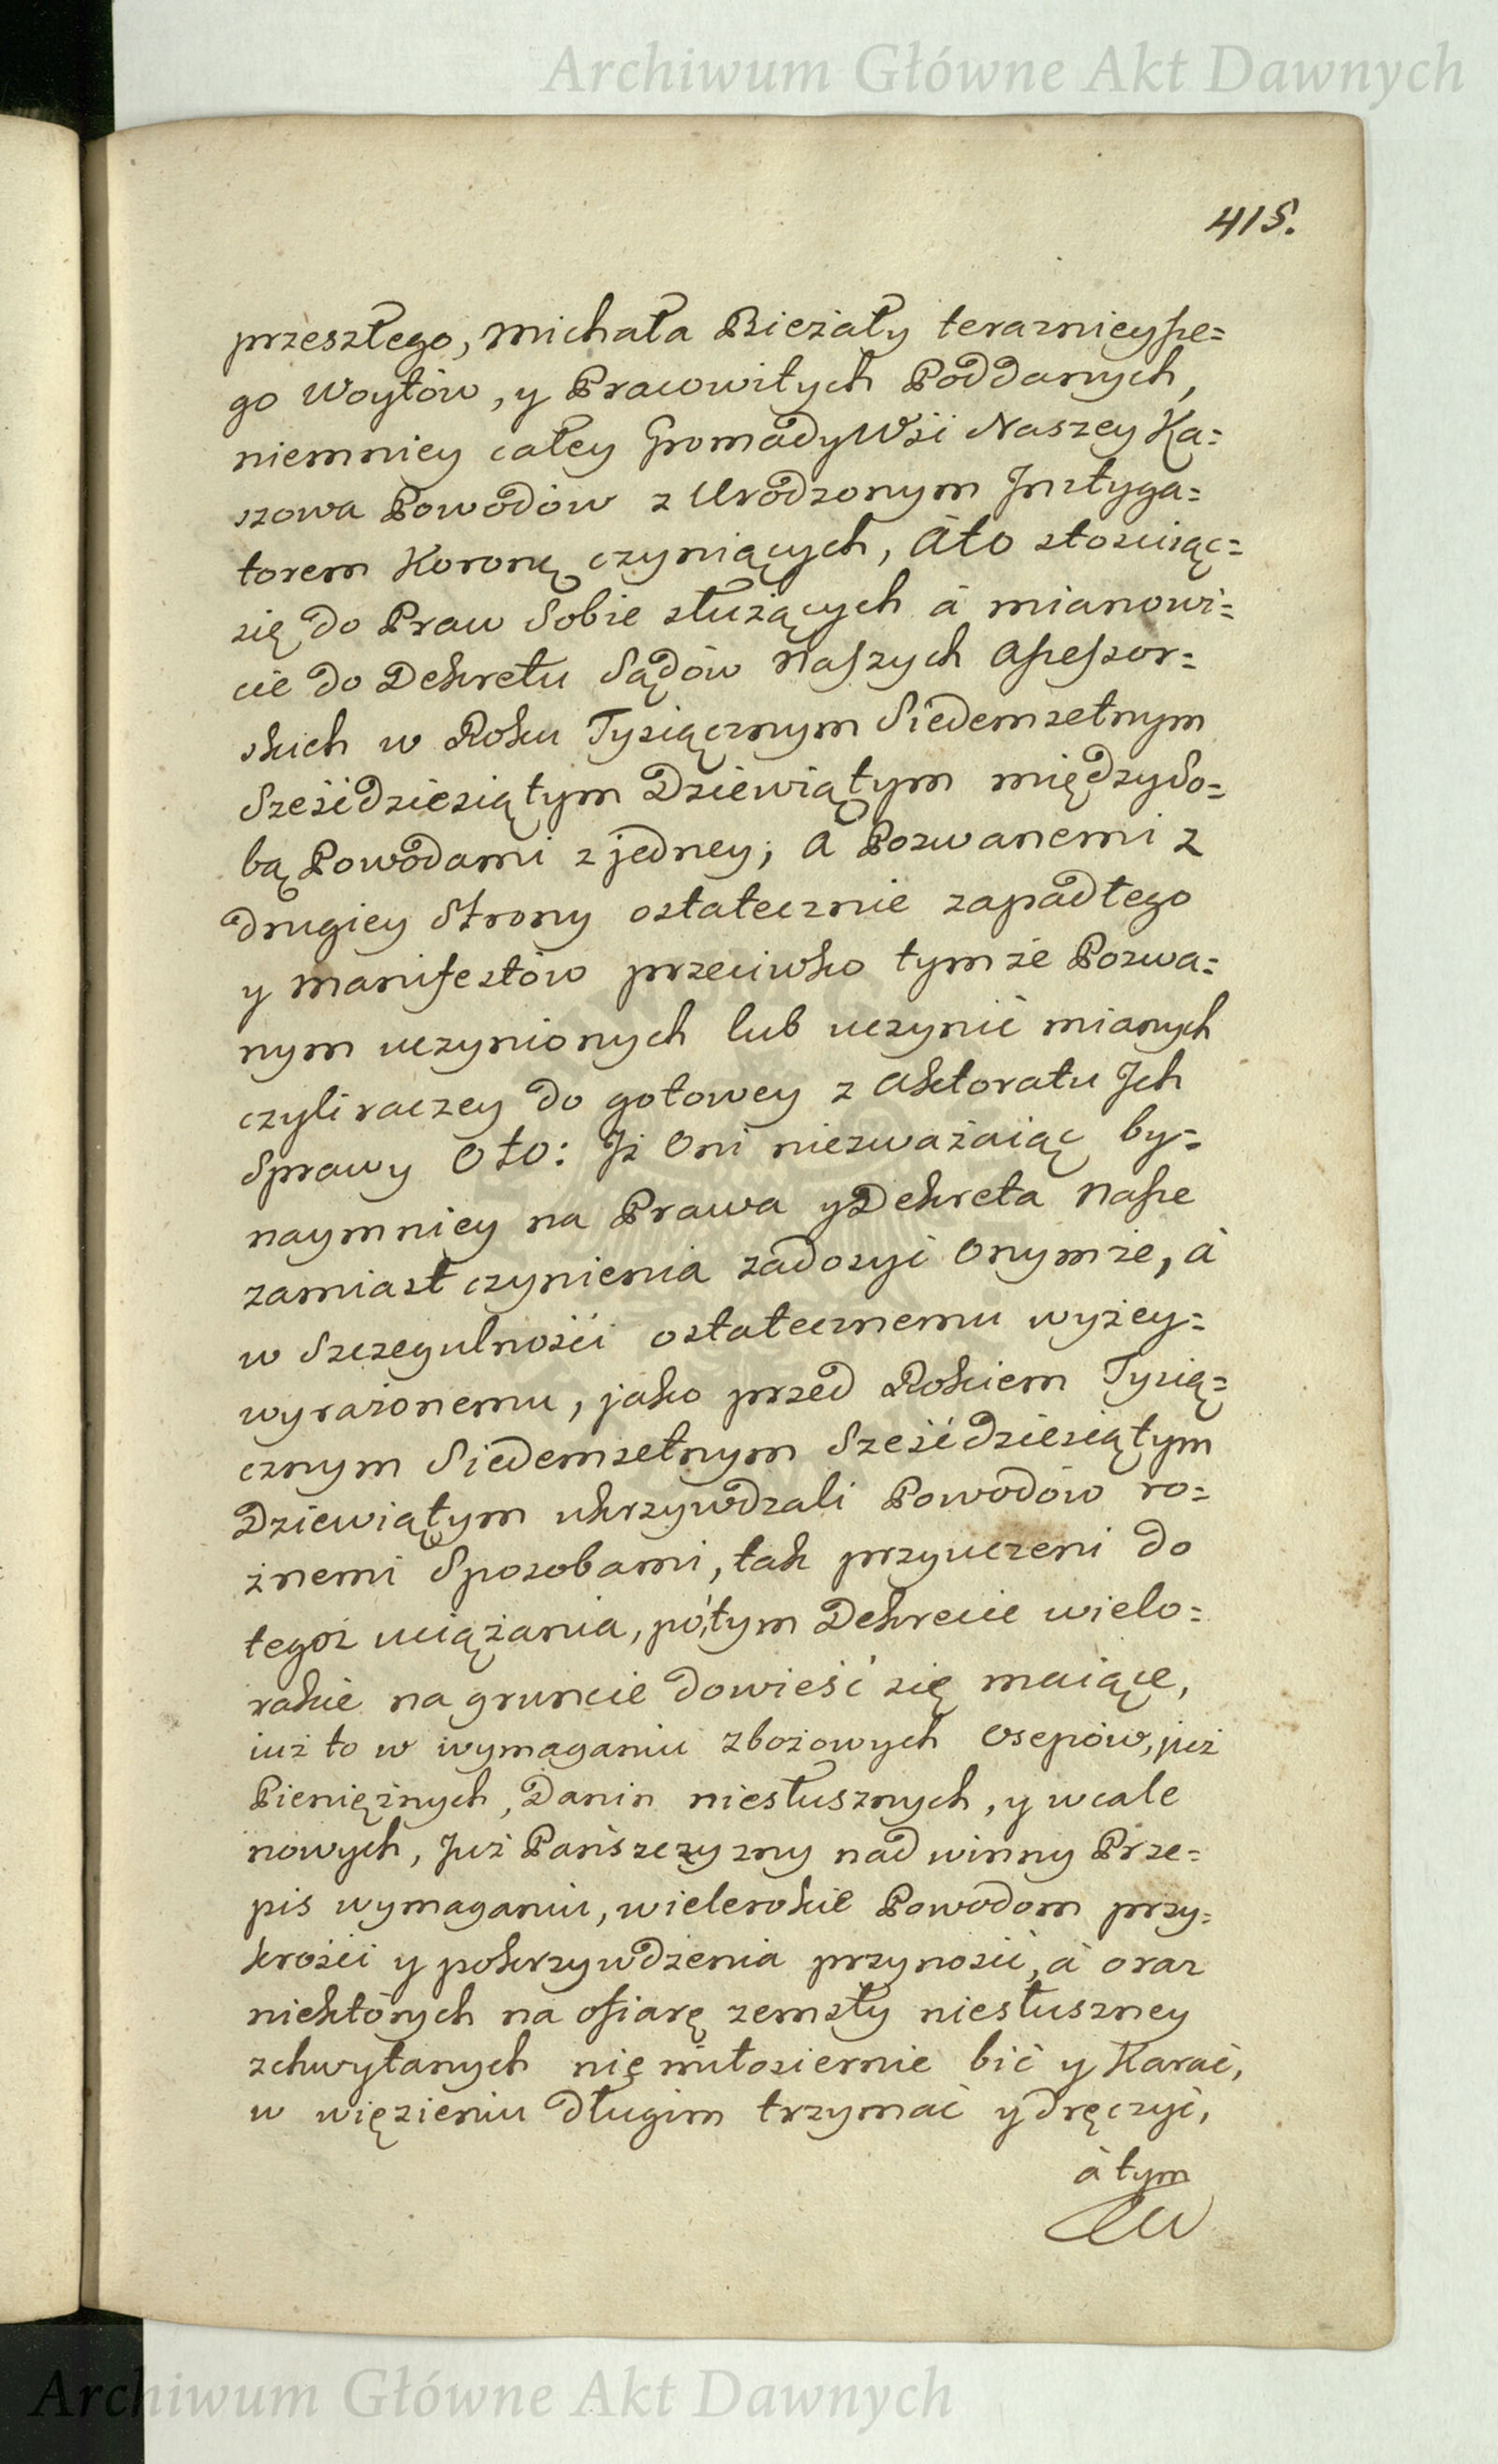 Archiwum Główne Akt Dawnych
415.
przeszłego, Michała Bieżały teraznieysze=
go Woytów, y Pracowitych Poddanych,
niemniey całey Gromady Wsi Naszey Ka=
szowa Powodów z Urodzonym Instyga=
torem Koronę czyniących, Ato stosuiąc=
się do Praw Sobie służących á mianowi=
cie do Dekretu Sądów Naszych Assessor=
skich w Roku Tysiącznym Siedemsetnym
Sześćdziesiątym Dziewiątym między So=
bą Powodami z jedney, A Pozwanemi z
drugiey Strony ostatecznie zapadłego
y Manifestów przeciwko tymże Pozwa=
nym uczynionych lub uczynić mianych
czyli raczey do gotowey z Aktoratu Jch
Sprawy Oto: Jż Oni niezważaiąc by=
naymniey na Prawa y Dekreta Nasze
zamiast czynienia zadosyć Onymże, á
w Szczegulności ostatecznemu wyżey=
wyrażonemu, jako przed Rokiem Tysią=
cznym Siedemsetnym Sześćdziesiątym
Dziewiątym ukrzywdzali Powodów ro=
żnemi Sposobami, tak przyuczeni do
tegoż uciążania, pó tym Dekrecie wielo=
rakie na gruncie dowieść się maiące,
iuż to w wymaganiu zbożowych Osepów, już
Pieniężnych, Danin niesłusznych, y wcale
nowych, Już Pańszczyzny nad winny Prze=
pis wymaganiu, wielerakie Powodom przy=
krości y pokrzywdzenia przynosić, á oraz
niektórych na ofiarę zemsty niesłuszney
zchwytanych nię miłosiernie bić y Karać,
w więzieniu długim trzymać y dręczyć,
á tym
Archiwum Główne Akt Dawnych